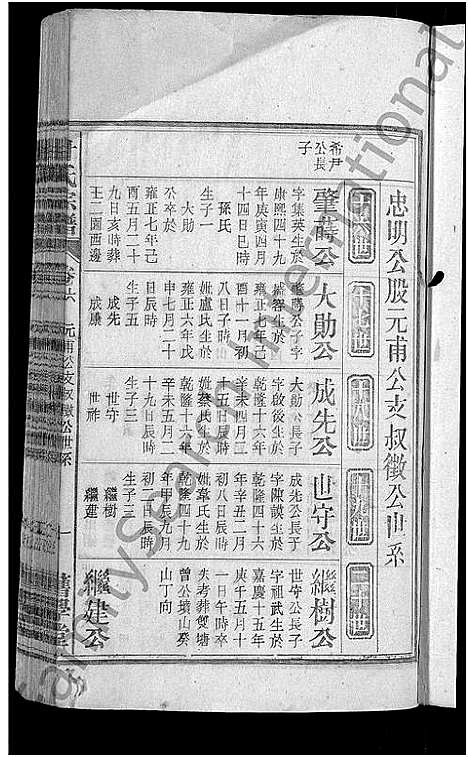 忠明公股元甫公支叔徵公世系
十六世
希尹
公長
子
肇蒔公
字集英生於
康熙四十九
年庚寅四月
十四日巳時
孫氏
生子一
大勛
公卒於
雍正七年己
酉五月二十
九日亥時葬
王二園西邊
十七世
大勛公
肇蒔公子字
雍正七年己
酉十一月初
八日子時
妣盧氏生於
雍正六年戊
申七月二十
日辰時
生子五
成先
成廉
十八世
成先公
大勛公長子
字啟後生於
乾隆十六年
辛未四月二
十五日辰時
妣蔡氏生於
乾隆十六年
辛未五月二
十九日辰時
生子三
世守
世祚
十九世
世守公
成先公長子
字陳謨生於
乾隆四十六
年辛丑二月
初八日辰時
妣韋氏生於
乾隆四十九
年甲辰九月
初二日辰時
生子三
繼樹
繼建
二十世
繼樹公
世守公長子
字祖武生於
嘉慶十五年
庚午五月十
一日午時卒
失考葬雙塘
曾公墳山癸
山丁向
繼建公
氏宗譜
元甫公支叔徵公世系
一